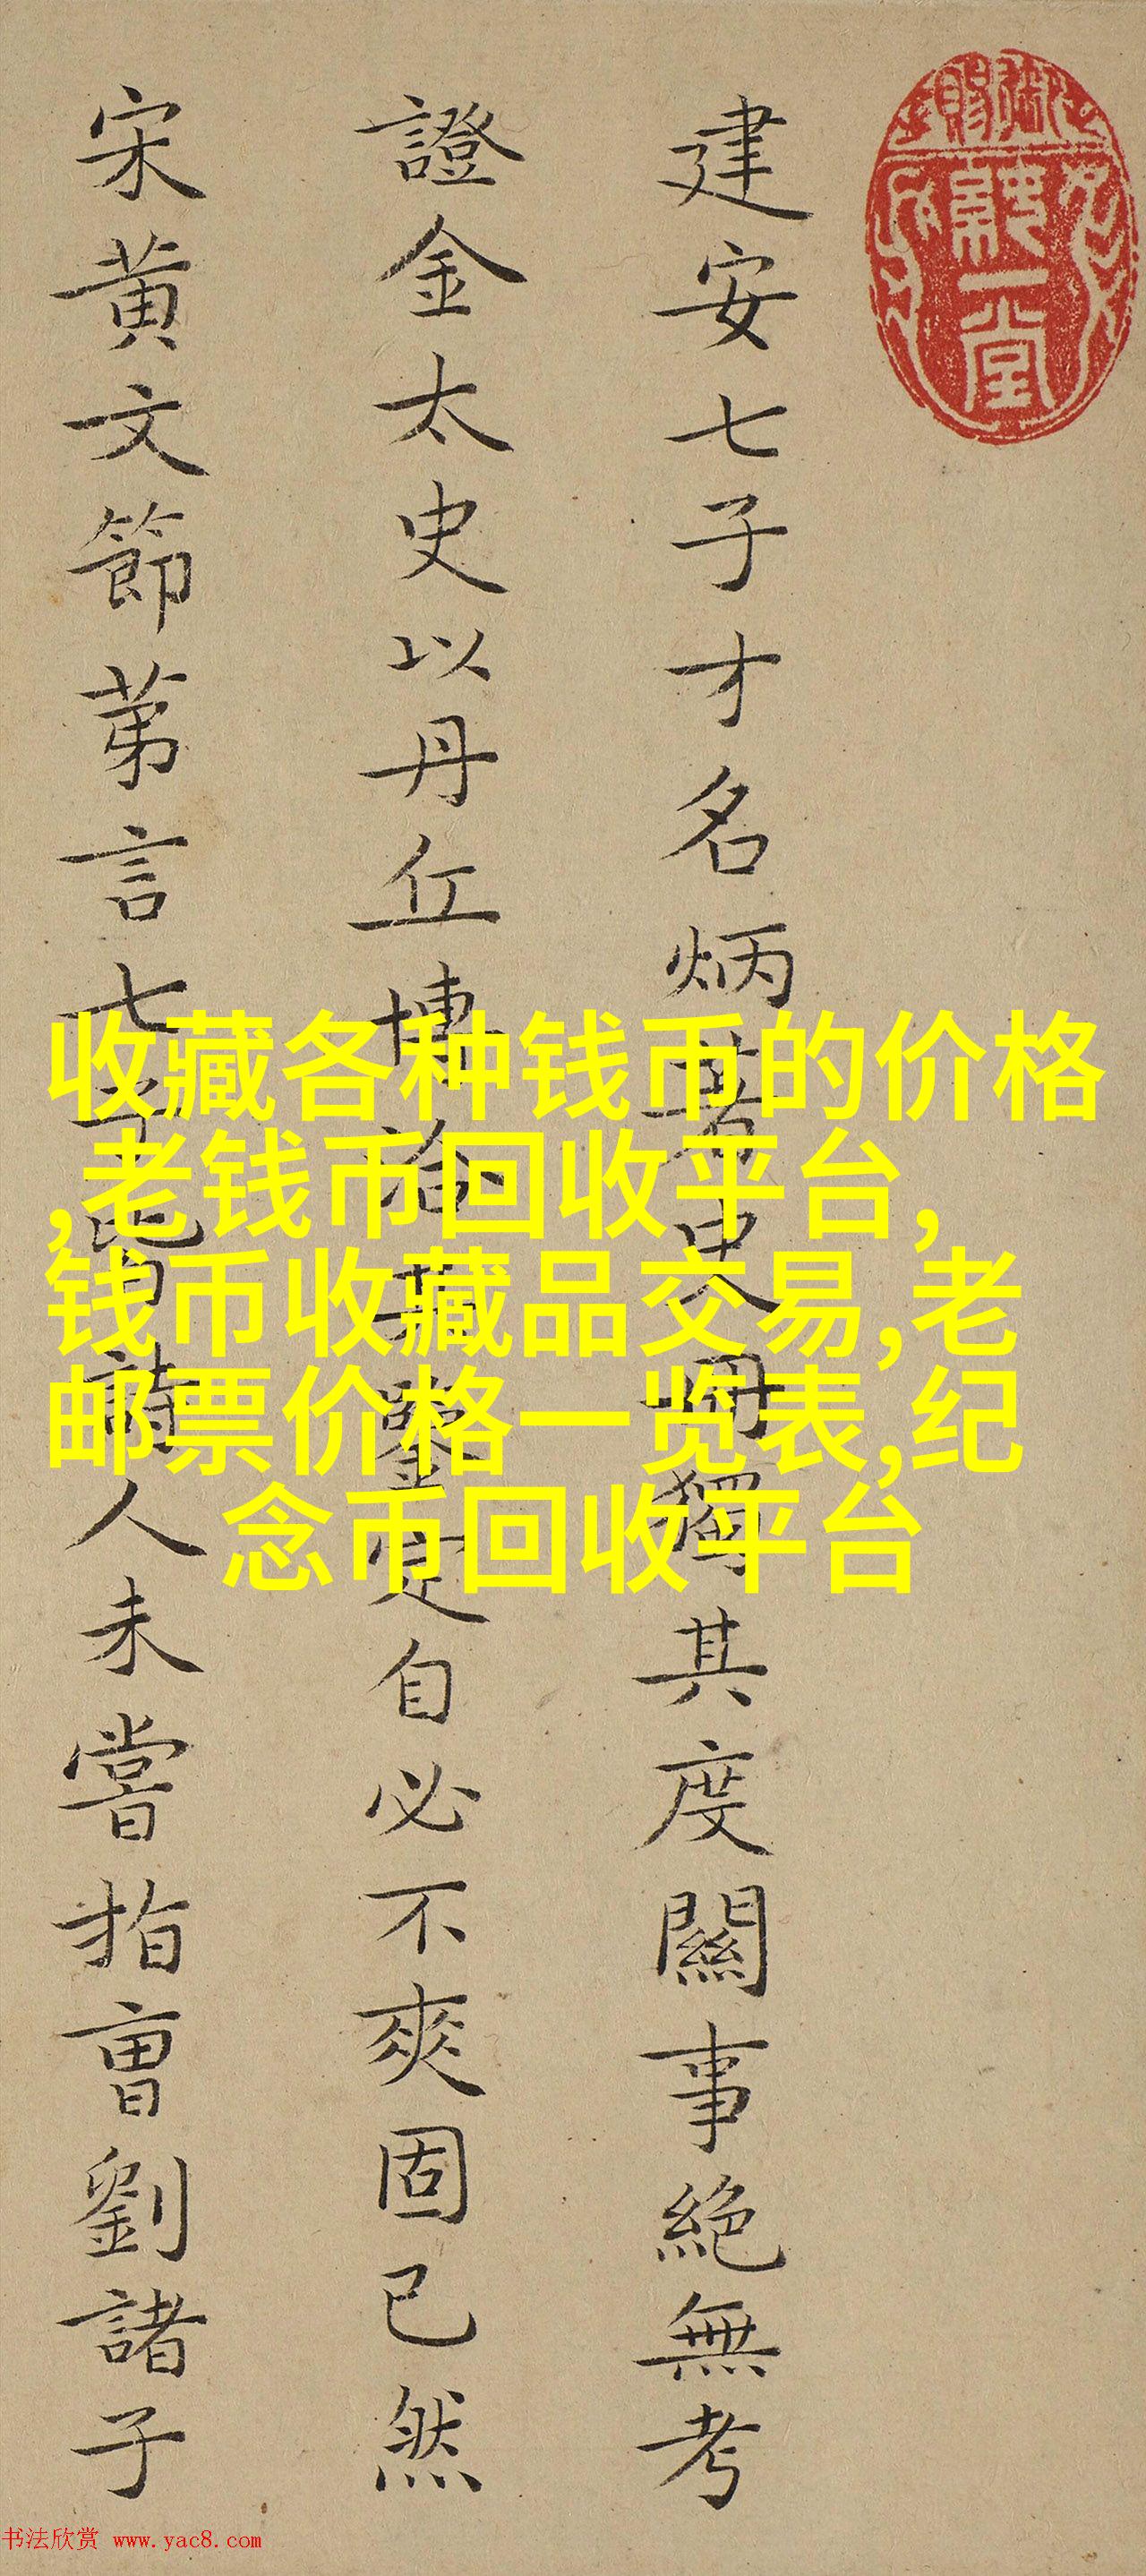 建安七子才名炳著史冊獨其度關事絕無考
證金太史以丹丘博洽其鑒定自必不爽固已然
宋黄文節苐言七子皆詩人未嘗指曺劉諸子
收藏各种钱币的价格
,老钱币回收平台,
钱币收藏品交易,老
邮票价格一览表,纪
念币回收平台
书法欣赏 www.yac8.com